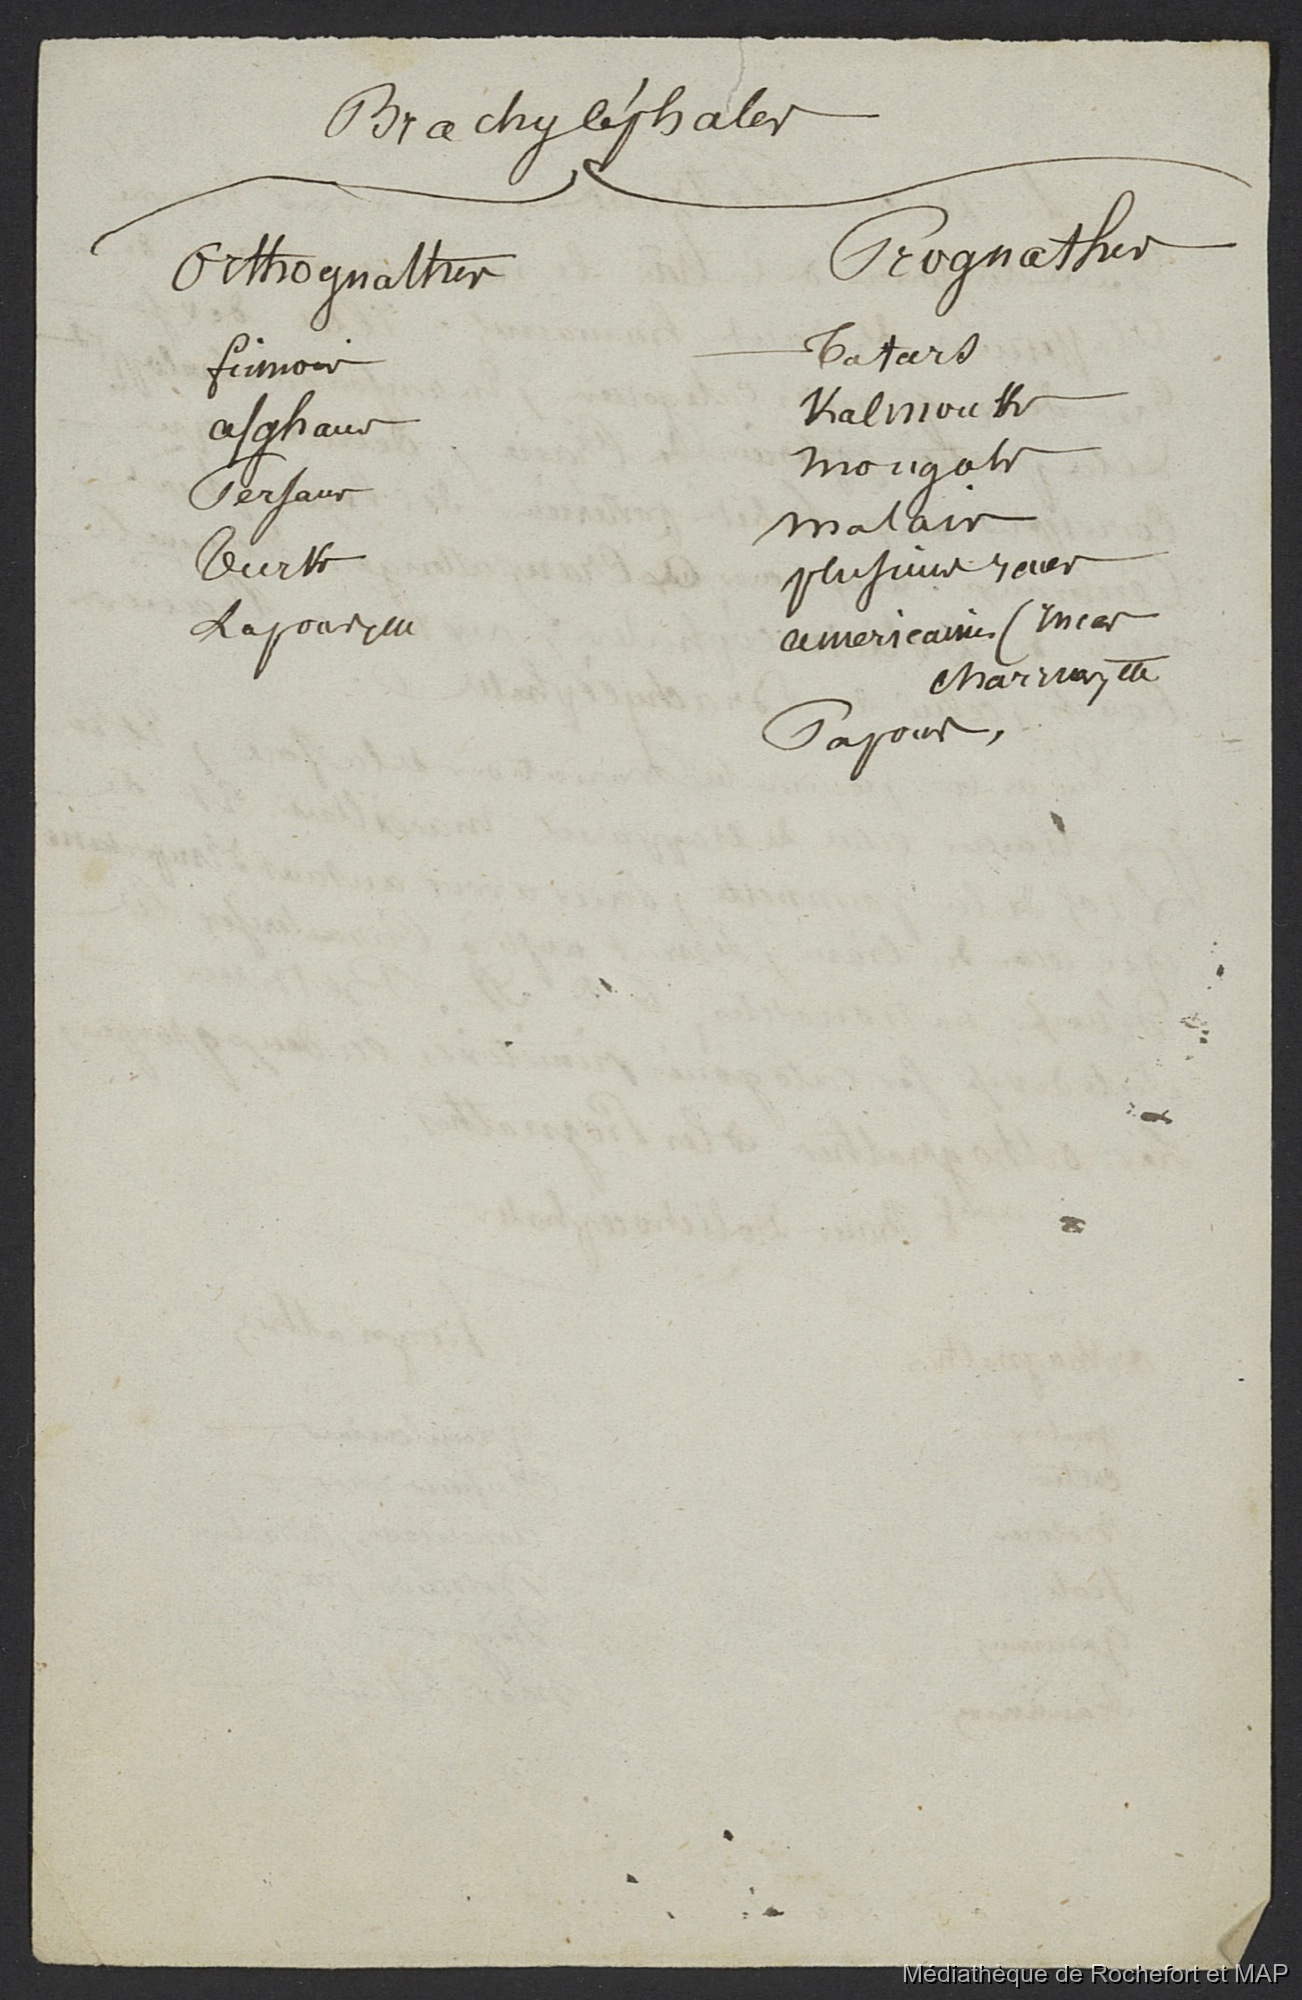 Brachycéphales
Orthognathes
finnois
afghans
Persans
Turks
Lapons, etc
Prognathes
Tatars
Kalmouks
mongols
malais
plusieurs races
americaines (Incas
charruas, etc
Papous,
Médiathèque de Rochefort et MAP